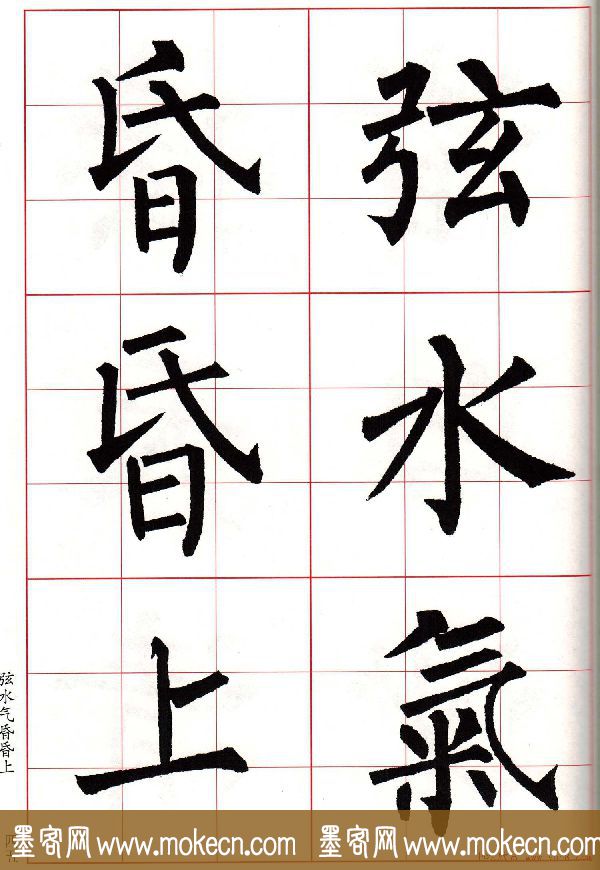 弦水氣
昏昏上
弦水气昏昏上
墨客网 www.mokecn.com 墨客网 www.mokecn.com